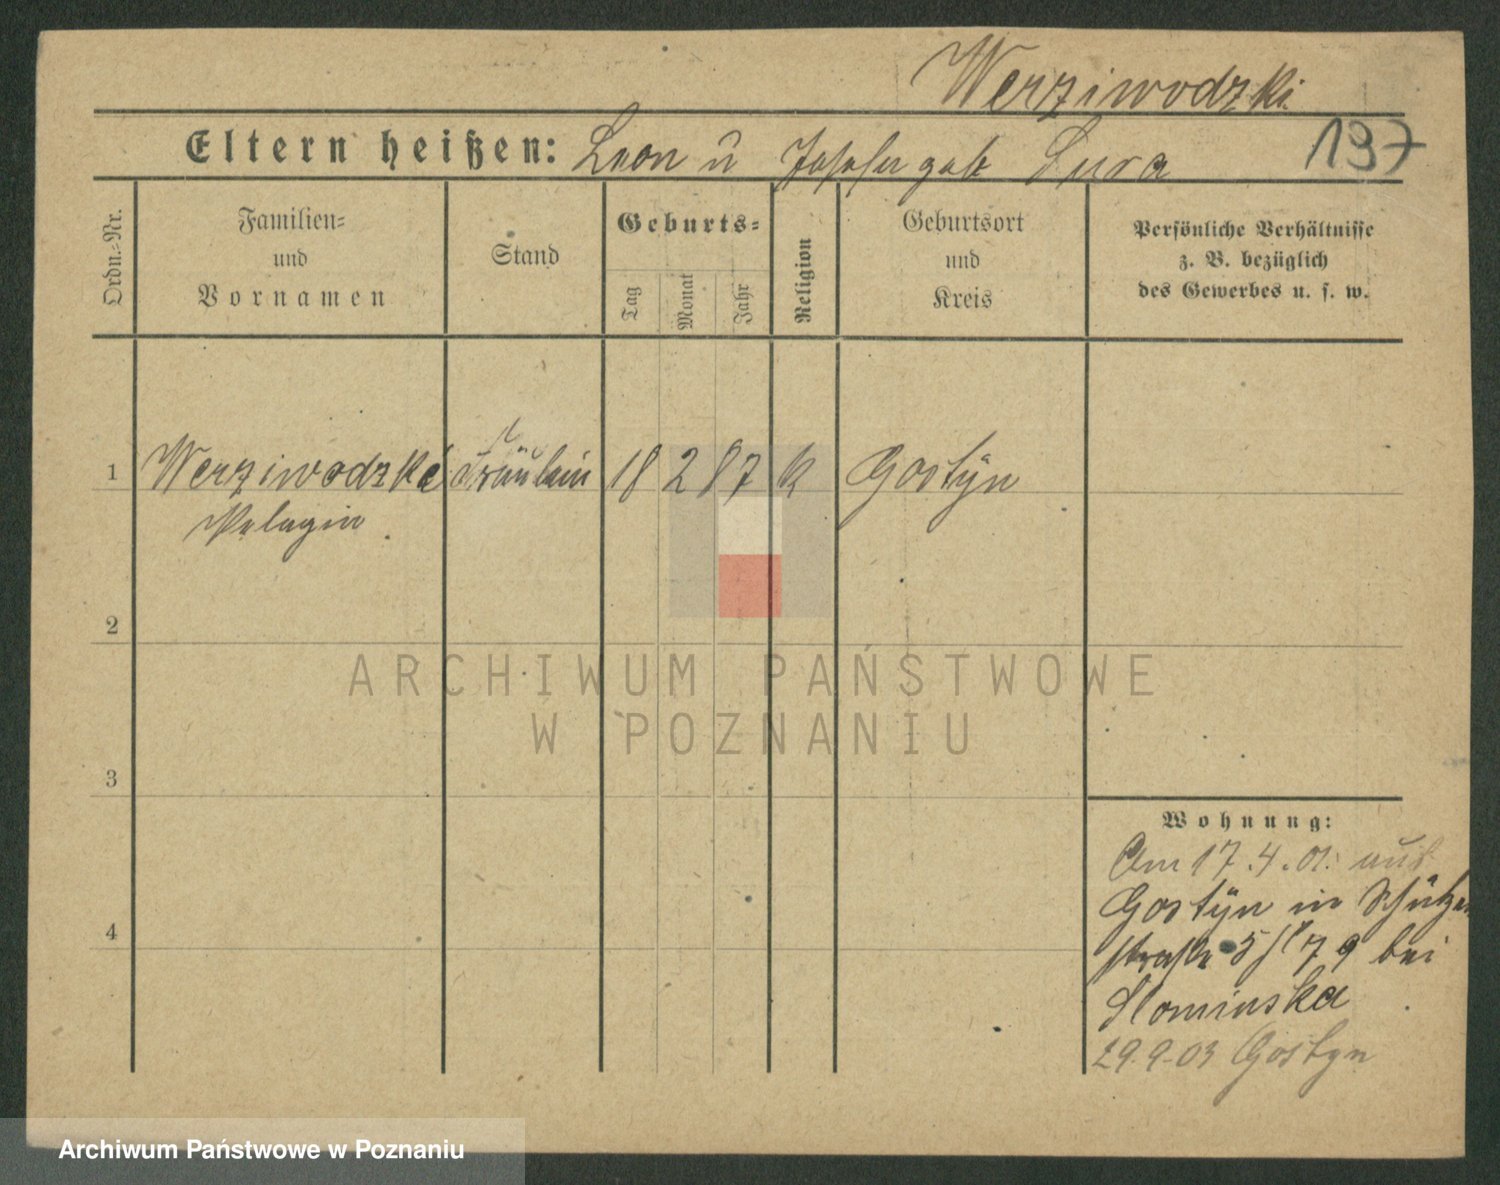 Werziwodzki
Eltern heißen: Leon u Josefa geb Sura 137
Ordn.-Nr.
Familien-
und
Vornamen
Stand
Geburts-
Tag
Monat
Jahr
Religion
Geburtsort
und
Kreis
Persönliche Verhältnisse
z. B. bezüglich
des Gewerbes u. s. w.
1 Werziwodzka Fräulein 18 2 87 k Gostÿn
Pelagia
2
ARCHIWUM PAŃSTWOWE
W POZNANIU
3
Wohnung:
Am 17.4.01. aus
Gostÿn in Schützen
straße 5 bei
4
Slominska
29.9.03 Gostyn
Archiwum Państwowe w Poznaniu